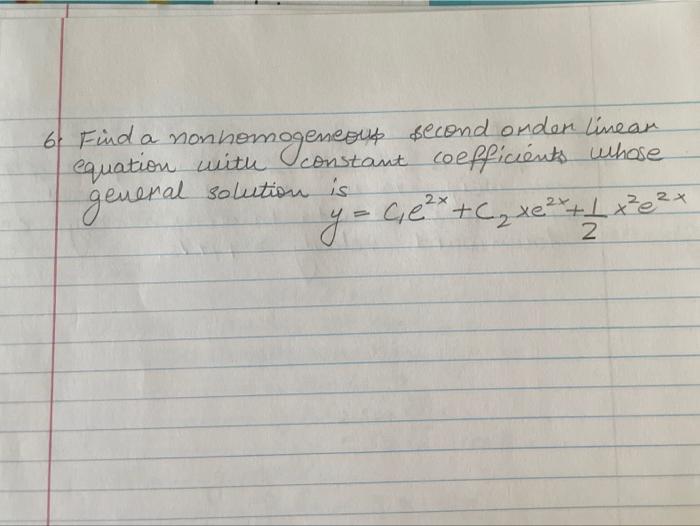 6. Find a nonhomogeneous second order linear
equation with constant coefficients whose
general solution is
y = C₁e²ˣ + C₂ xe²ˣ + 1/2 x²e²ˣ